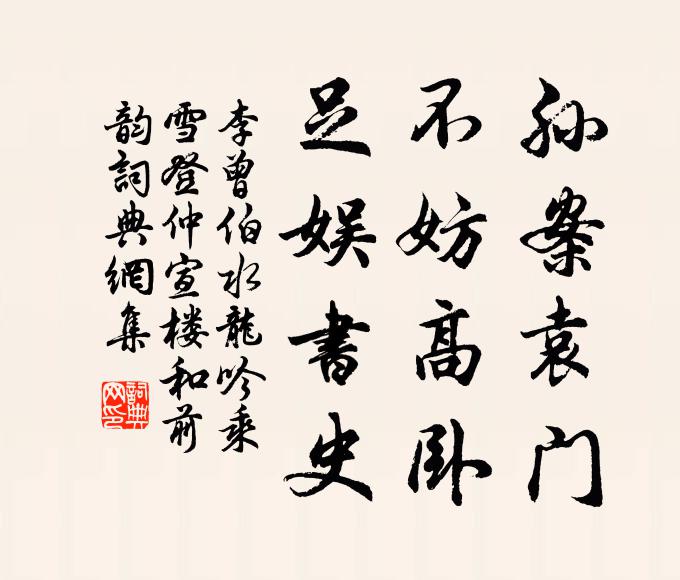 孙案袁门
不妨高卧
足娱書史
李曾伯水龍吟乘
雪登仲宣楼和前
韵詞典網集
詞典
网印